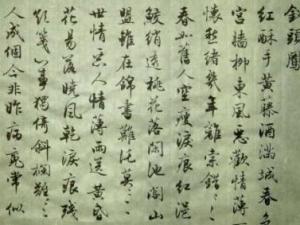 釵頭鳳
紅酥手黃藤酒滿城春色
宮牆柳東風惡歡情薄一
懷愁緒幾年離索錯々々
春如舊人空瘦淚痕紅浥
鮫綃透桃花落閒池閣山
盟雖在錦書難托莫々々
世情惡人情薄雨送黃昏
花易落曉風乾淚痕殘
欲箋心事獨倚斜欄難々
人成個今非昨病魂常似